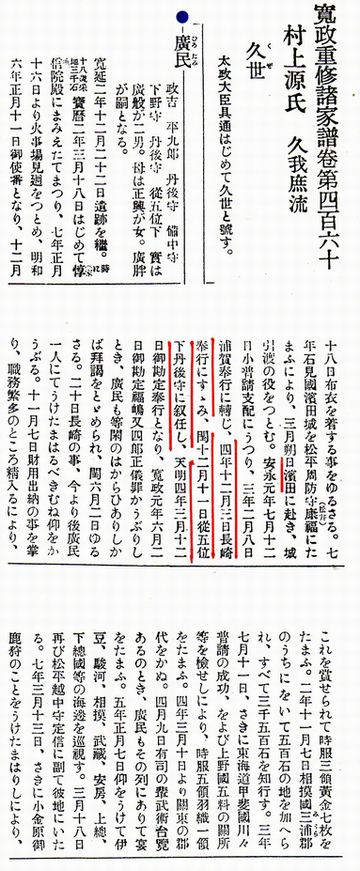 寛政重修諸家譜卷第四百六十
村上源氏 久我庶流
久世
くぜ
太政大臣具通はじめて久世と號す。
廣民
ひろたみ
政吉 平九郎 丹後守 備中守
下野守 丹後守 從五位下 實は
廣般が二男。母は正興が女。廣胖
が嗣となる。
寛延二年十二月二十二日遺跡を繼。時に
十八歳采地三千石 寶曆二年三月十八日はじめて惇
信院殿にまみえたてまつり、七年正月
十六日より火事場見廻をつとめ、明和
六年正月十一日御使番となり、十二月
十八日布衣を着する事をゆるさる。七
年石見國濱田城を松平周防守康福にた
まふにより、三月朔日濱田に赴き、城
引渡の役をつとむ。安永元年七月十二
日小普請支配にうつり、三年二月八日
浦賀奉行に轉じ、四年十二月三日長崎
奉行にすゝみ、閏十二月十一日從五位
下丹後守に叙任し、天明四年三月十二
日御勘定奉行となり、寛政元年六月二
日御勘定福嶋又四郎正儀罪かうぶりし
とき、廣民も等閑のはからひありしか
ば拜謁をとゞめられ、閏六月二日ゆる
さる。二十日長崎の事、今より後廣民
一人にてうけたまはるべきむね仰をか
うぶる。十一月七日財用出納の事を掌
り、職務繁多のところ精入るにより、
これを賞せられて時服三領黄金七枚を
たまふ。二年十一月七日相摸國三浦郡
のうちにをいて五百石の地を加へら
れ、すべて三千五百石を知行す。三年
七月十一日、さきに東海道甲斐國川々
普請の成功、をよび上野國五料の關所
等を檢せしにより、時服五領羽織一領
をたまふ。四年三月十日より關東の郡
代をかぬ。四月九日有司の輩武術台覽
あるのとき、廣民もその列にありて宴
をたまふ。五年正月七日仰をうけて伊
豆、駿河、相摸、武藏、安房、上總、
下總國等の海邊を巡視す。三月十八日
再び松平越中守定信に副て彼地にいた
る。七年三月十三日、さきに小金原御
鹿狩のことをうけたまはりしにより、